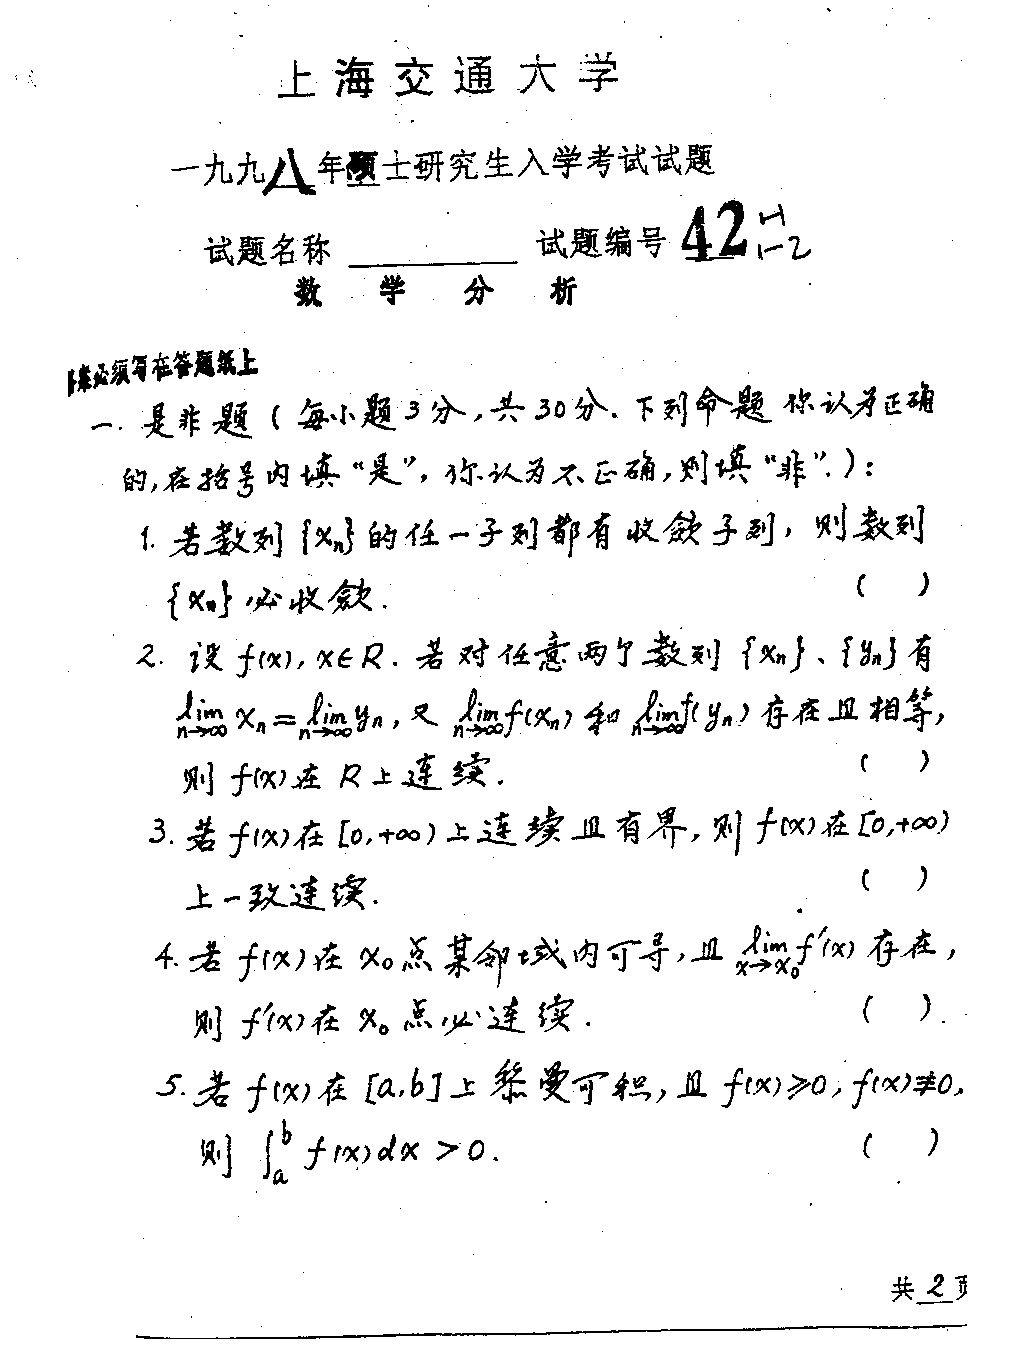 上海交通大学
一九九八年硕士研究生入学考试试题
试题名称 ________ 试题编号 42 1-1
1-2
数 学 分 析
答案必须写在答题纸上
一. 是非题 (每小题3分,共30分. 下列命题你认为正确
的,在括号内填“是”,你认为不正确,则填“非”.):
1. 若数列{xn}的任一子列都有收敛子列, 则数列
{xn}必收敛. ( )
2. 设 f(x), x∈R. 若对任意两个数列{xn}、{yn}有
lim n→∞ xn = lim n→∞ yn, 又 lim n→∞ f(xn) 和 lim n→∞ f(yn) 存在且相等,
则 f(x)在 R 上连续. ( )
3. 若 f(x)在[0,+∞)上连续且有界, 则 f(x)在[0,+∞)
上一致连续. ( )
4. 若 f(x)在 x₀点某邻域内可导, 且 lim x→x₀ f′(x) 存在,
则 f′(x)在 x₀点必连续. ( )
5. 若 f(x)在[a,b]上黎曼可积, 且 f(x)≥0, f(x)≢0,
则 ∫_a^b f(x)dx > 0. ( )
共 2 页